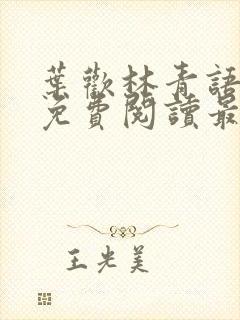 葉歡林青語
免費閱讀最
王光美